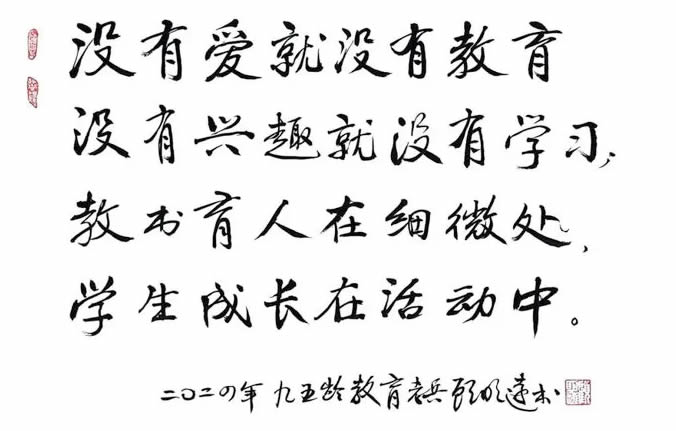 没有爱就没有教育
没有兴趣就没有学习;
教书育人在细微处,
学生成长在活动中。
二〇二四年 九五龄教育老兵顾明远书